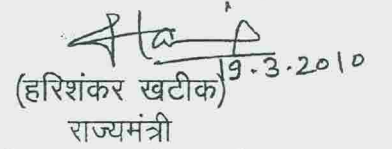 19.3.2010
(हरिशंकर खटीक)
राज्यमंत्री